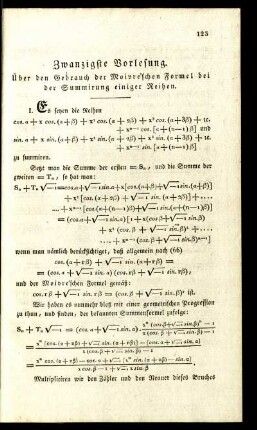 123
Zwanzigste Vorlesung.
Über den Gebrauch der Moivre'schen Formel bei
der Summirung einiger Reihen.
1. Es seyen die Reihen
cos. α + x cos. (α + β) + x² cos. (α + 2β) + x³ cos. (α + 3β) + ıc.
+ xⁿ⁻¹ cos. [α + (n — 1) β] und
sin. α + x sin. (α + β) + x² sin. (α + 2β) + x³ sin. (α + 3β) + ıc.
+ xⁿ⁻¹ sin. [α + (n — 1) β]
zu summiren.
Setzt man die Summe der ersten = Sₙ, und die Summe der
zweiten = Tₙ, so hat man:
Sₙ + Tₙ √—1 = cos. α + √—1 sin. α + x [cos. (α + β) + √—1 sin. (α + β)]
+ x² [cos. (α + 2β) + √—1 sin. (α + 2β)] + ....
.... + xⁿ⁻¹ [cos. (α + (n—1) β) + √—1 sin. (α + (n—1) β)]
= (cos. α + √—1 sin. α) [1 + x (cos. β + √—1 sin. β)
+ x² (cos. β + √—1 sin. β)² + ...
.... + xⁿ⁻¹ (cos. β + √—1 sin. β)ⁿ⁻¹]
wenn man nämlich berücksichtiget, daß allgemein nach (66)
cos. (α + rβ) + √—1 sin. (α + rβ) =
= (cos. α + √—1 sin. α) (cos. rβ + √—1 sin. rβ),
und der Moivre'schen Formel gemäß:
cos. rβ + √—1 sin. rβ = (cos. β + √—1 sin. β)ʳ ist.
Wir haben es nunmehr bloß mit einer geometrischen Progression
zu thun, und finden, der bekannten Summenformel zufolge:
Sₙ + Tₙ √—1 = (cos. α + √—1 sin. α) · (xⁿ (cos. β + √—1 sin. β)ⁿ — 1) / (x (cos. β + √—1 sin. β) — 1)
Multipliciren wir den Zähler und den Nenner dieses Bruches